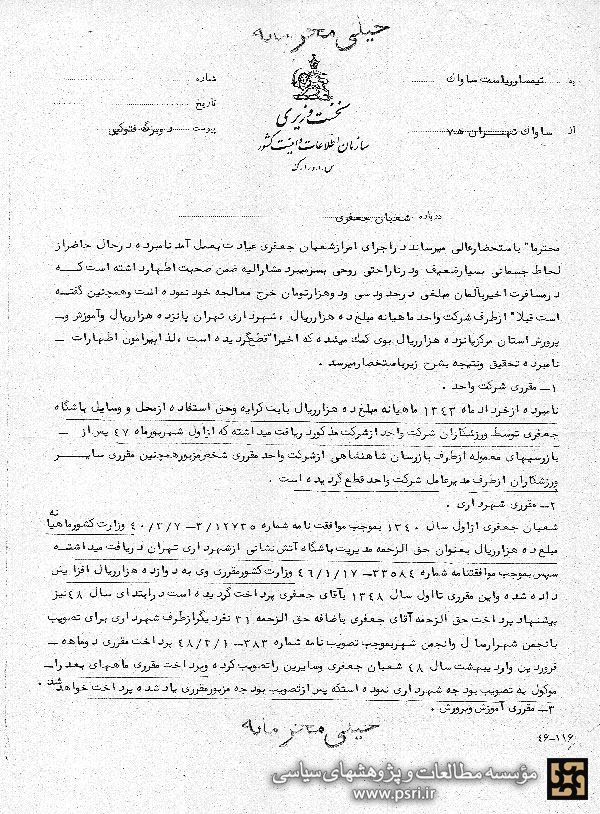 خیلی محرمانه
به تیمسار ریاست ساواک
شماره
تاریخ
از ساواک تهران ۷ه
پیوست دو برگ فتوکپی
نخست وزیری
سازمان اطلاعات و امنیت کشور
س.ا.و.ا.ک
درباره شعبان جعفری
محترما" باستحضارعالی میرساند در اجرای امر ازشعبان جعفری عیادت بعمل آمد نامبرده در حال حاضر از
لحاظ جسمانی بسیار ضعیف و در ناراحتی روحی بسر میبرد مشارالیه ضمن صحبت اظهار داشته است که
در مسافرت اخیر بآلمان مبلغی در حدود سی و دو هزار تومان خرج معالجه خود نموده است و همچنین گفته
است قبلا" از طرف شرکت واحد ماهیانه مبلغ ده هزار ریال ، شهرداری تهران پانزده هزار ریال و آموزش و
پرورش استان مرکز پانزده هزار ریال بوی کمک میشده که اخیرا" قطع گردیده است ، لذا پیرامون اظهارات
نامبرده تحقیق و نتیجه بشرح زیر باستحضار میرسد .
۱ـ مقرری شرکت واحد .
نامبرده از خرداد ماه ۱۳۴۳ ماهیانه مبلغ ده هزار ریال بابت کرایه و حق استفاده از محل و وسایل باشگاه
جعفری توسط ورزشکاران شرکت واحد از شرکت مذکور دریافت میداشته که از اول شهریور ماه ۴۷ پس از
بازرسیهای معموله از طرف بازرسان شاهنشاهی از شرکت واحد مقرری شخص مزبور و همچنین مقرری سایر
ورزشکاران از طرف مدیر عامل شرکت واحد قطع گردیده است .
۲ـ مقرری شهرداری .
شعبان جعفری از اول سال ۱۳۴۰ بموجب موافقت نامه شماره ۳/۱۲۷۳۵ـ۴۰/۲/۷ وزارت کشور ماهیانه
مبلغ ده هزار ریال بعنوان حق الزحمه مدیریت باشگاه آتش نشانی از شهرداری تهران دریافت میداشته
سپس بموجب موافقتنامه شماره ۳۳۵۸۴ـ۴۶/۱/۱۷ وزارت کشور مقرری وی به دوازده هزار ریال افزایش
داده شده و این مقرری تا اول سال ۱۳۴۸ بآقای جعفری پرداخت گردیده است در ابتدای سال ۴۸ نیز
پیشنهاد پرداخت حق الزحمه آقای جعفری باضافه حق الزحمه ۳۱ نفر دیگر از طرف شهرداری برای تصویب
بانجمن شهر ارسال و انجمن شهر بموجب تصویب نامه شماره ۳۸۳ـ۴۸/۲/۱ پرداخت مقرری دو ماهه
فروردین و اردیبهشت سال ۴۸ شعبان جعفری و سایرین را تصویب کرده و پرداخت مقرری ماههای بعد را
موکول به تصویب بودجه شهرداری نموده است که پس از تصویب بودجه مزبور مقرری یاد شده پرداخت خواهد شد .
۳ـ مقرری آموزش و پرورش .
خیلی محرمانه
۴۶-۱۱۶
مؤسسه مطالعات و پژوهشهای سیاسی
www.psri.ir